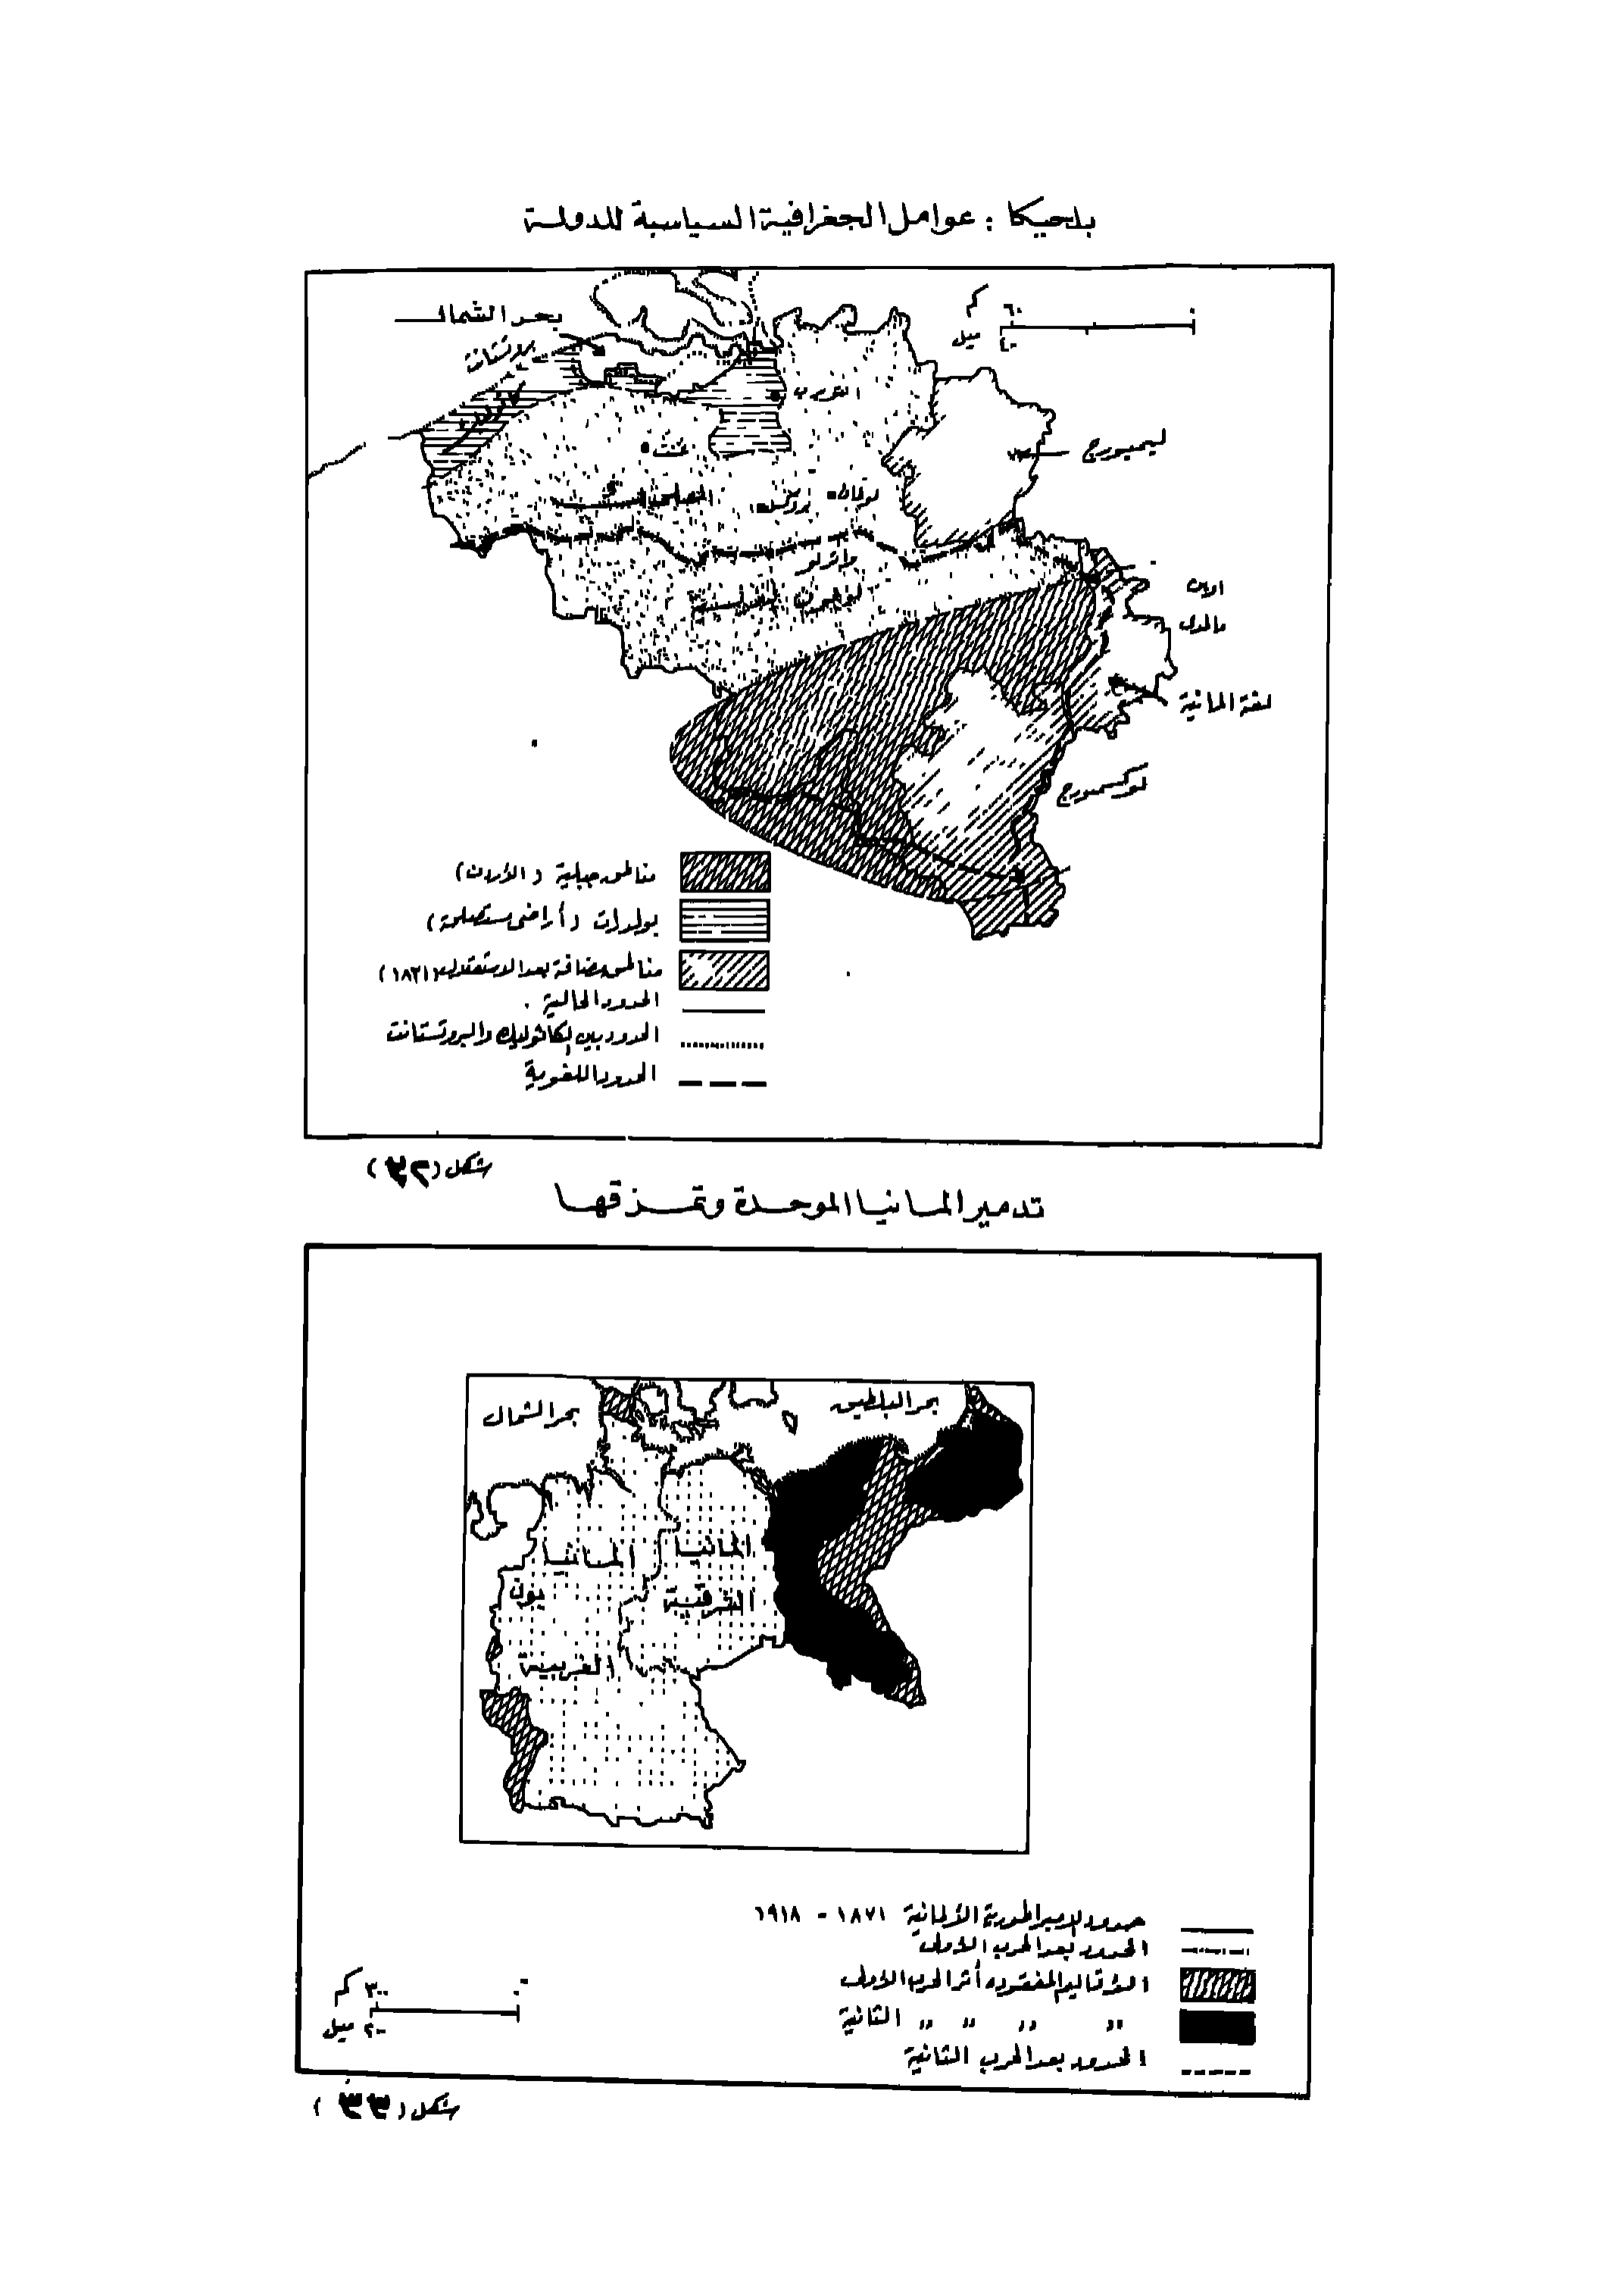 بلجيكا : عوامل الجغرافية السياسية للدولة
بحر الشمال
كم ٦٠ ٠
ميل ٤٠
بروتستانت
انتورب
ليمبورج
غنت
لوفان
بروكسل
واترلو
اوبن
مالمدي
لغة المانية
لوكسمبورج
مناطق جبلية (الأردن)
بولدرات (أراضى مستصلحة)
مناطق مضافة بعد الاستقلال (١٨٣١)
الحدود الحالية .
الحدود بين الكاثوليك والبروتستانت
الحدود اللغوية
شكل (٣٢)
تدمير المانيا الموحدة وتمزقها
بحر الشمال
بحر البلطيق
المانيا
المانيا
بون
الشرقية
الغربية
حدود الامبراطورية الألمانية ١٨٧١ - ١٩١٨
الحدود بعد الحرب الأولى
الأقاليم المفقوده أثر الحرب الأولى
〃 〃 〃 〃 الثانية
الحدود بعد الحرب الثانية
كم ٣٠٠ ٠
ميل ٢٠٠
شكل (٣٣)